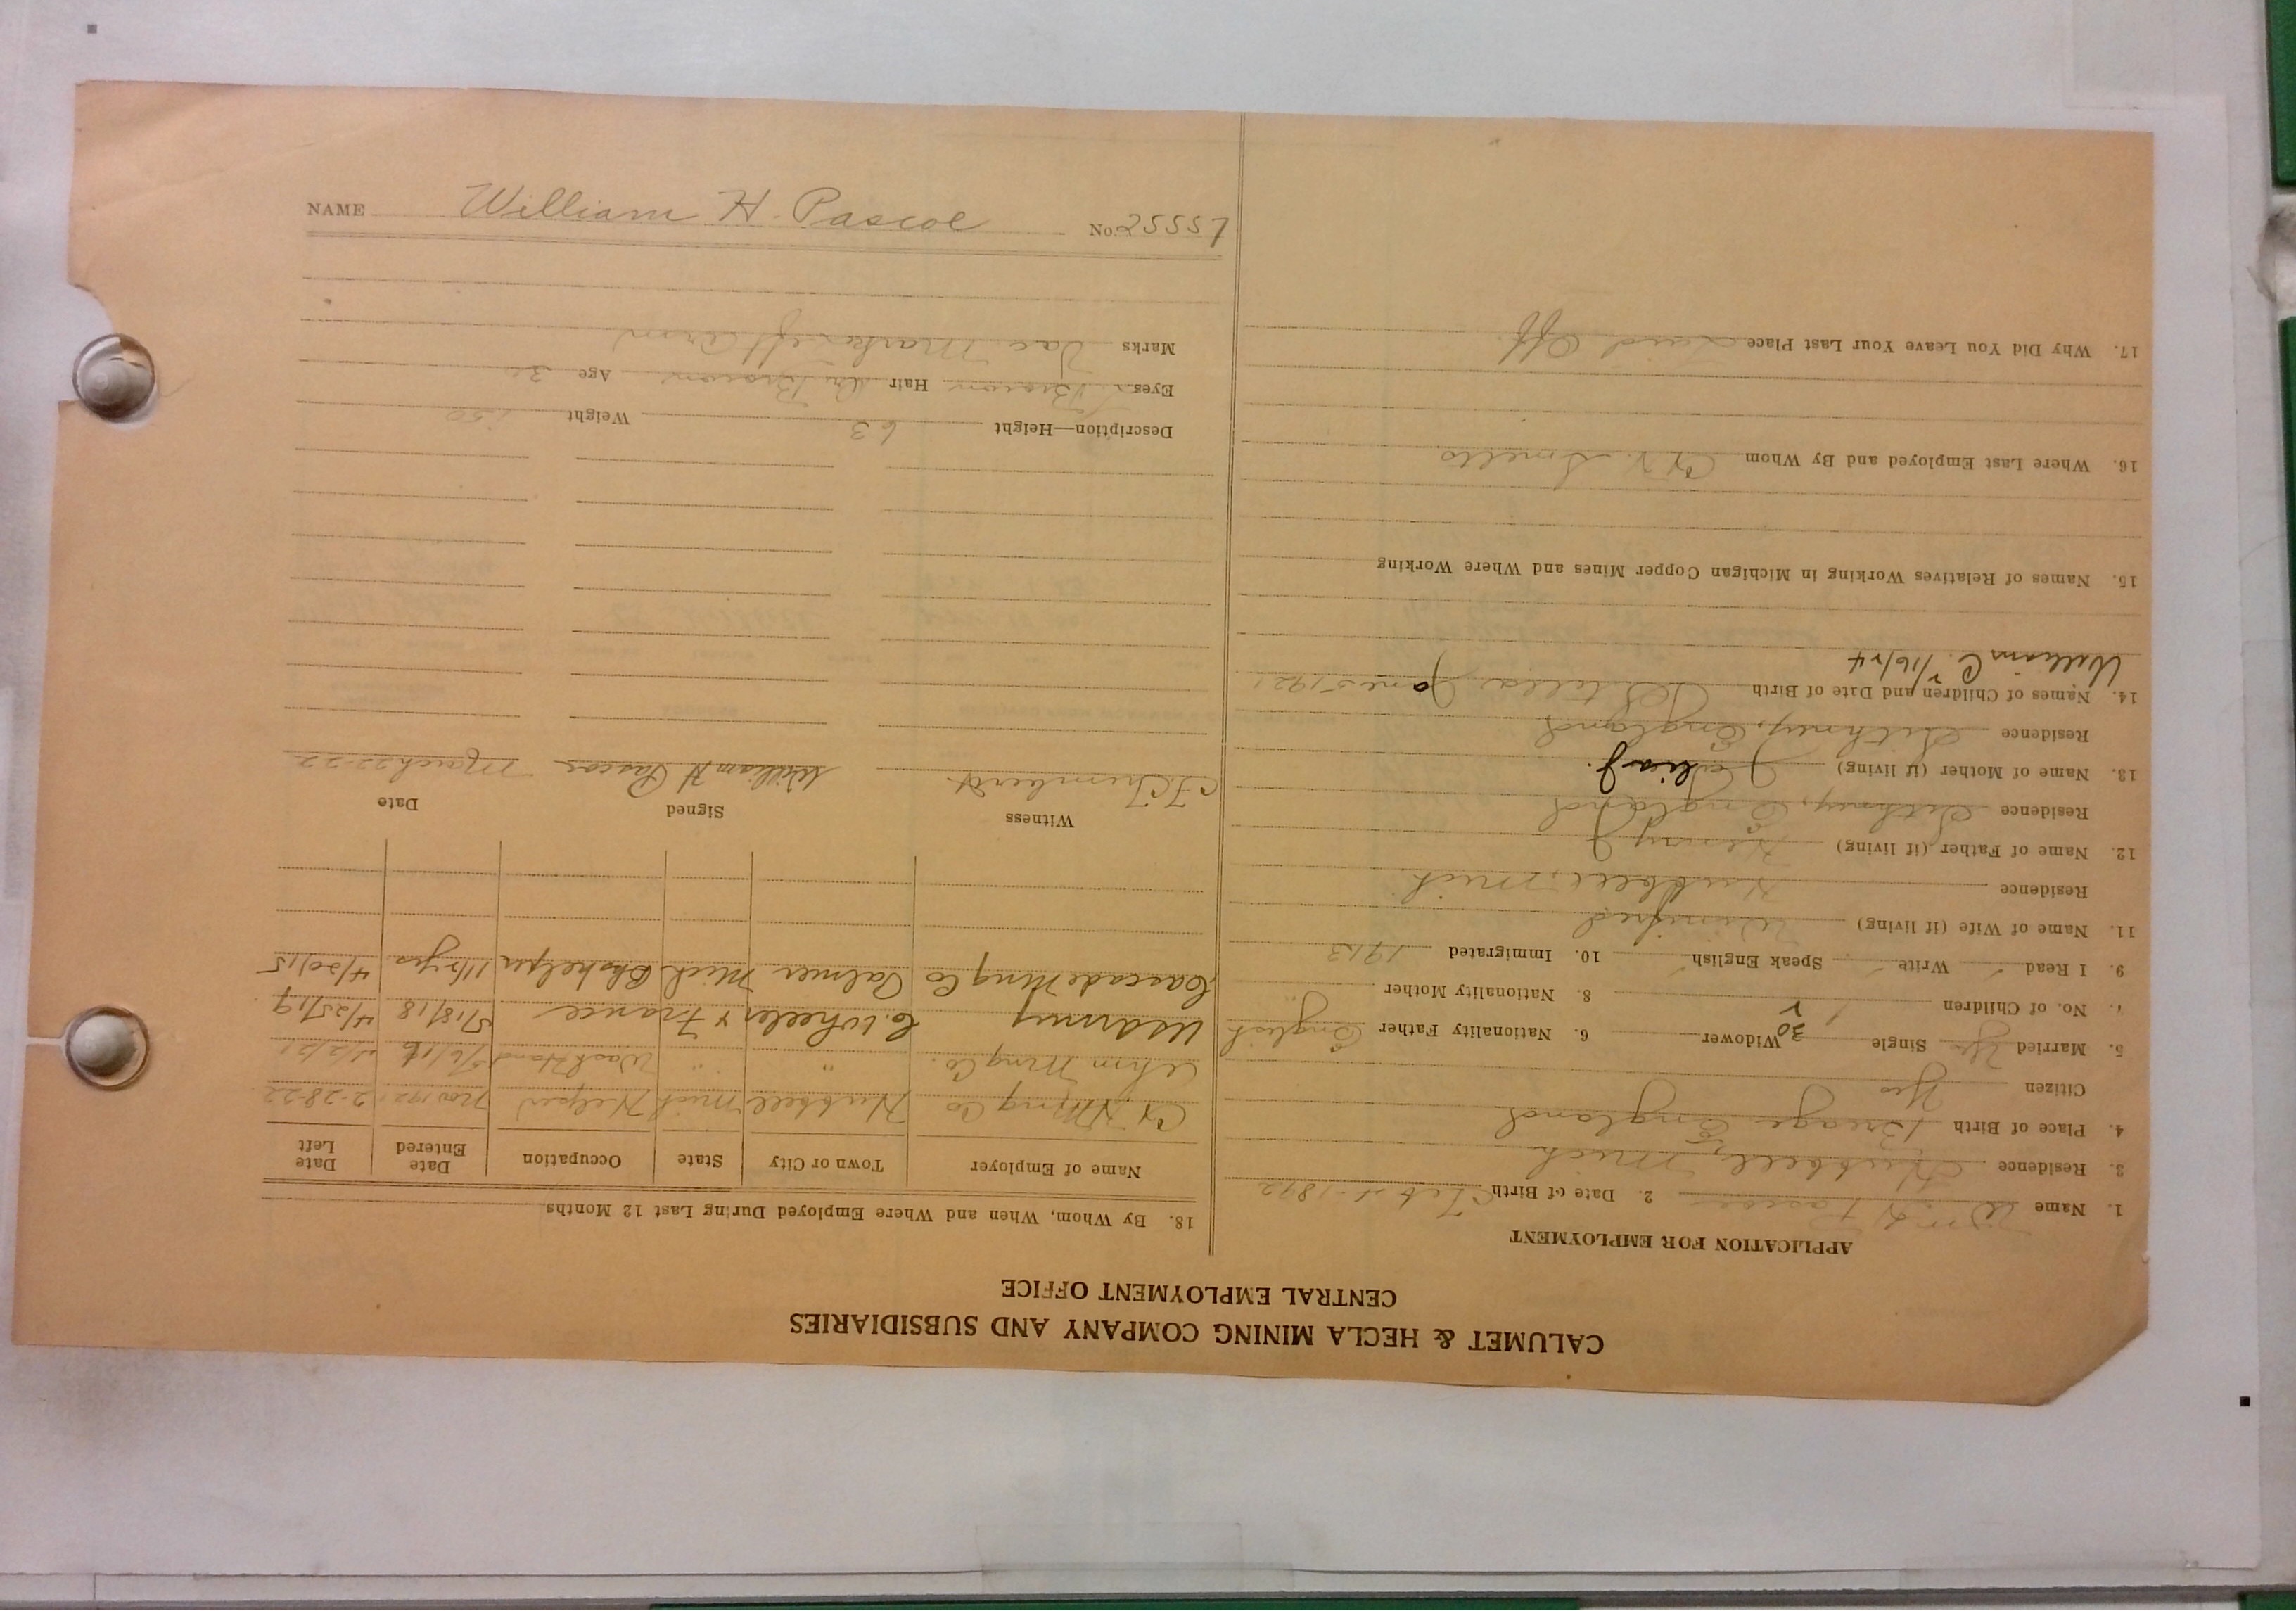 CALUMET & HECLA MINING COMPANY AND SUBSIDIARIES
CENTRAL EMPLOYMENT OFFICE
APPLICATION FOR EMPLOYMENT
1. Name Wm H Pascoe 2. Date of Birth 1892
3. Residence Hubbell, Mich
4. Place of Birth Breage England
Citizen Yes
5. Married Yes Single Widower 30 6. Nationality Father English
7. No. of Children 1 2 8. Nationality Mother "
9. I Read ✓ Write ✓ Speak English ✓ 10. Immigrated 1913
11. Name of Wife (if living) Winifred
Residence Hubbell, Mich.
12. Name of Father (if living) Henry
Residence Sithney, England
13. Name of Mother (if living) Julia J.
Residence Sithney, England
14. Names of Children and Date of Birth 1921
William C. 7/16/24
15. Names of Relatives Working in Michigan Copper Mines and Where Working
16. Where Last Employed and By Whom C & H Smelts
17. Why Did You Leave Your Last Place Laid Off.
18. By Whom, When and Where Employed During Last 12 Months
Name of Employer Town or City State Occupation Date Entered Date Left
C & H Mng Co Hubbell Mich Helper Nov 1921 2-28-22
Ahm Mng Co. " " Wash Hand
US Army C. Wheeler & France 5/18/18 4/25/19
Cascade Mng Co Palmer Mich 1 1/2 yrs 4/20/15
Witness Signed Date
William H Pascoe March 22-22
Description—Height 63 Weight 150
Eyes Brown Hair Brown Age 30
Marks Vac. Mark left arm
NAME William H. Pascoe No. 25557